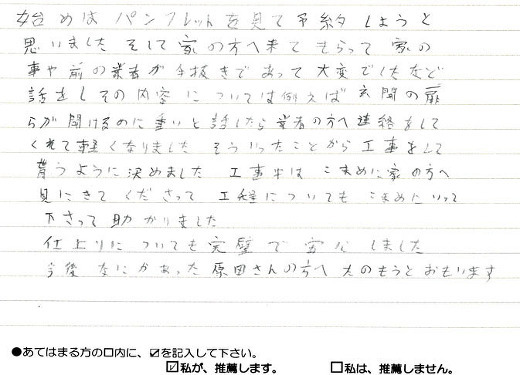 始めは パンフレットを見て予約しようと
思いました そして家の方へ来てもらって 家の
事や前の業者が手抜きであって大変でしたなど
話をしその内容については例えば玄関の扉
らが開けるのに重いと話したら業者の方へ連絡をして
くれて軽くなりました そういったことから工事をして
貰うように決めました 工事中は こまめに家の方へ
見にきてくださって 工程についても こまめにいって
下さって助かりました
仕上りについても完璧で安心しました
今後なにかあったら原田さんの方へたのもうとおもいます
●あてはまる方の□内に、☑を記入して下さい。
☑私が、推薦します。 □私は、推薦しません。